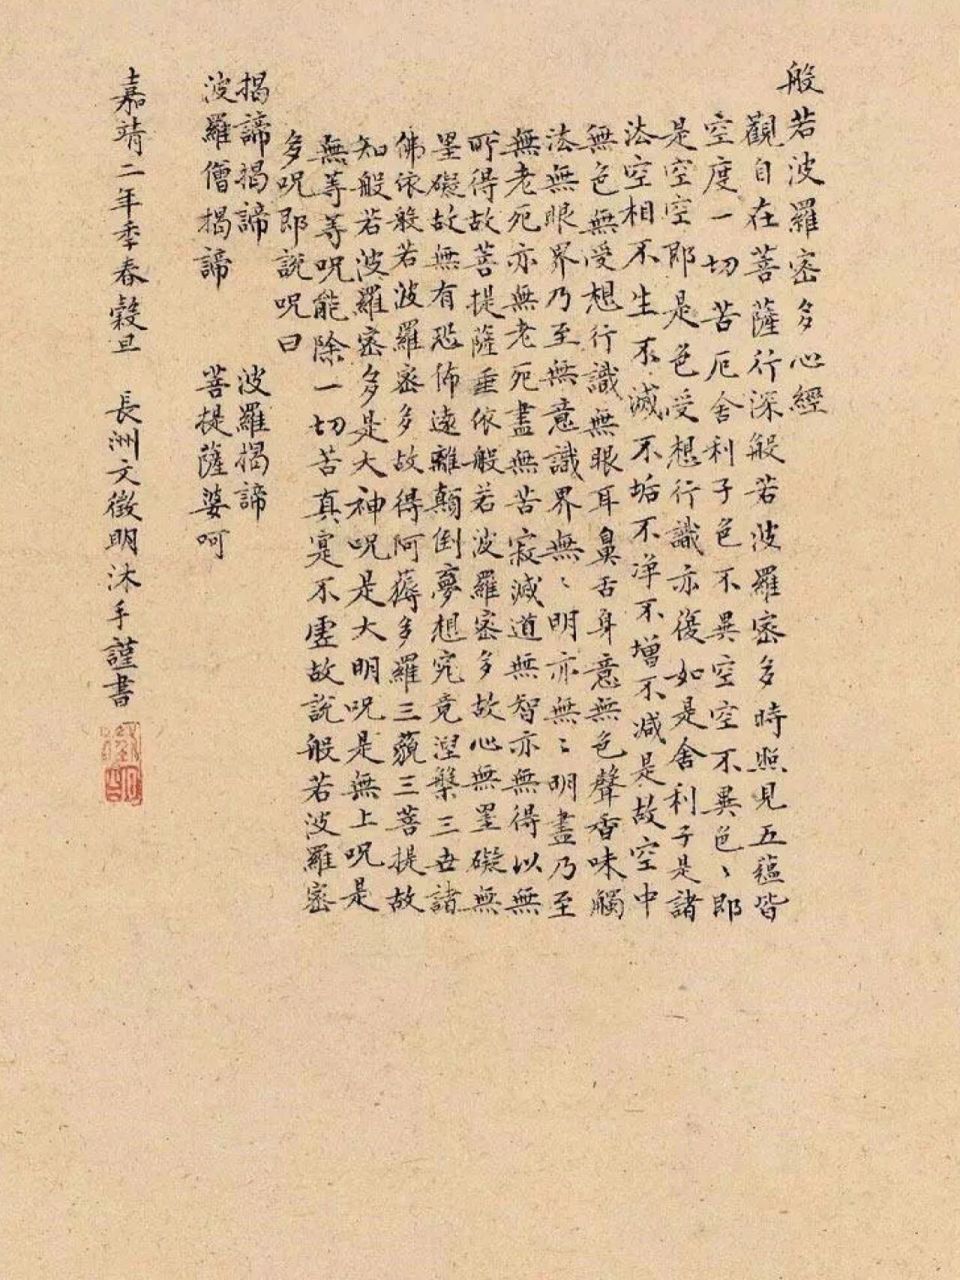 般若波羅密多心經
觀自在菩薩行深般若波羅密多時照見五蘊皆
空度一切苦厄舍利子色不異空空不異色、即
是空空即是色受想行識亦復如是舍利子是諸
法空相不生不滅不垢不淨不增不減是故空中
無色無受想行識無眼耳鼻舌身意無色聲香味觸
法無眼界乃至無意識界無〻明亦無〻明盡乃至
無老死亦無老死盡無苦寂滅道無智亦無得以無
所得故菩提薩垂依般若波羅密多故心無罣礙無
罣礙故無有恐怖遠離顛倒夢想究竟涅槃三世諸
佛依般若波羅密多故得阿耨多羅三藐三菩提故
知般若波羅密多是大神呪是大明呪是無上呪是
無等等呪能除一切苦真寔不虛故說般若波羅密
多呪即說呪曰
揭諦揭諦 波羅揭諦
波羅僧揭諦 菩提薩婆呵
嘉靖二年季春穀旦 長洲文徵明沐手謹書